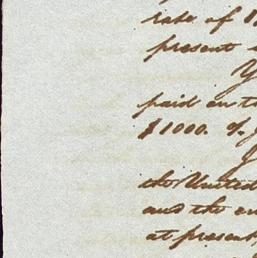 rate of
present
paid on
$1000. %
the United
and the
at present,